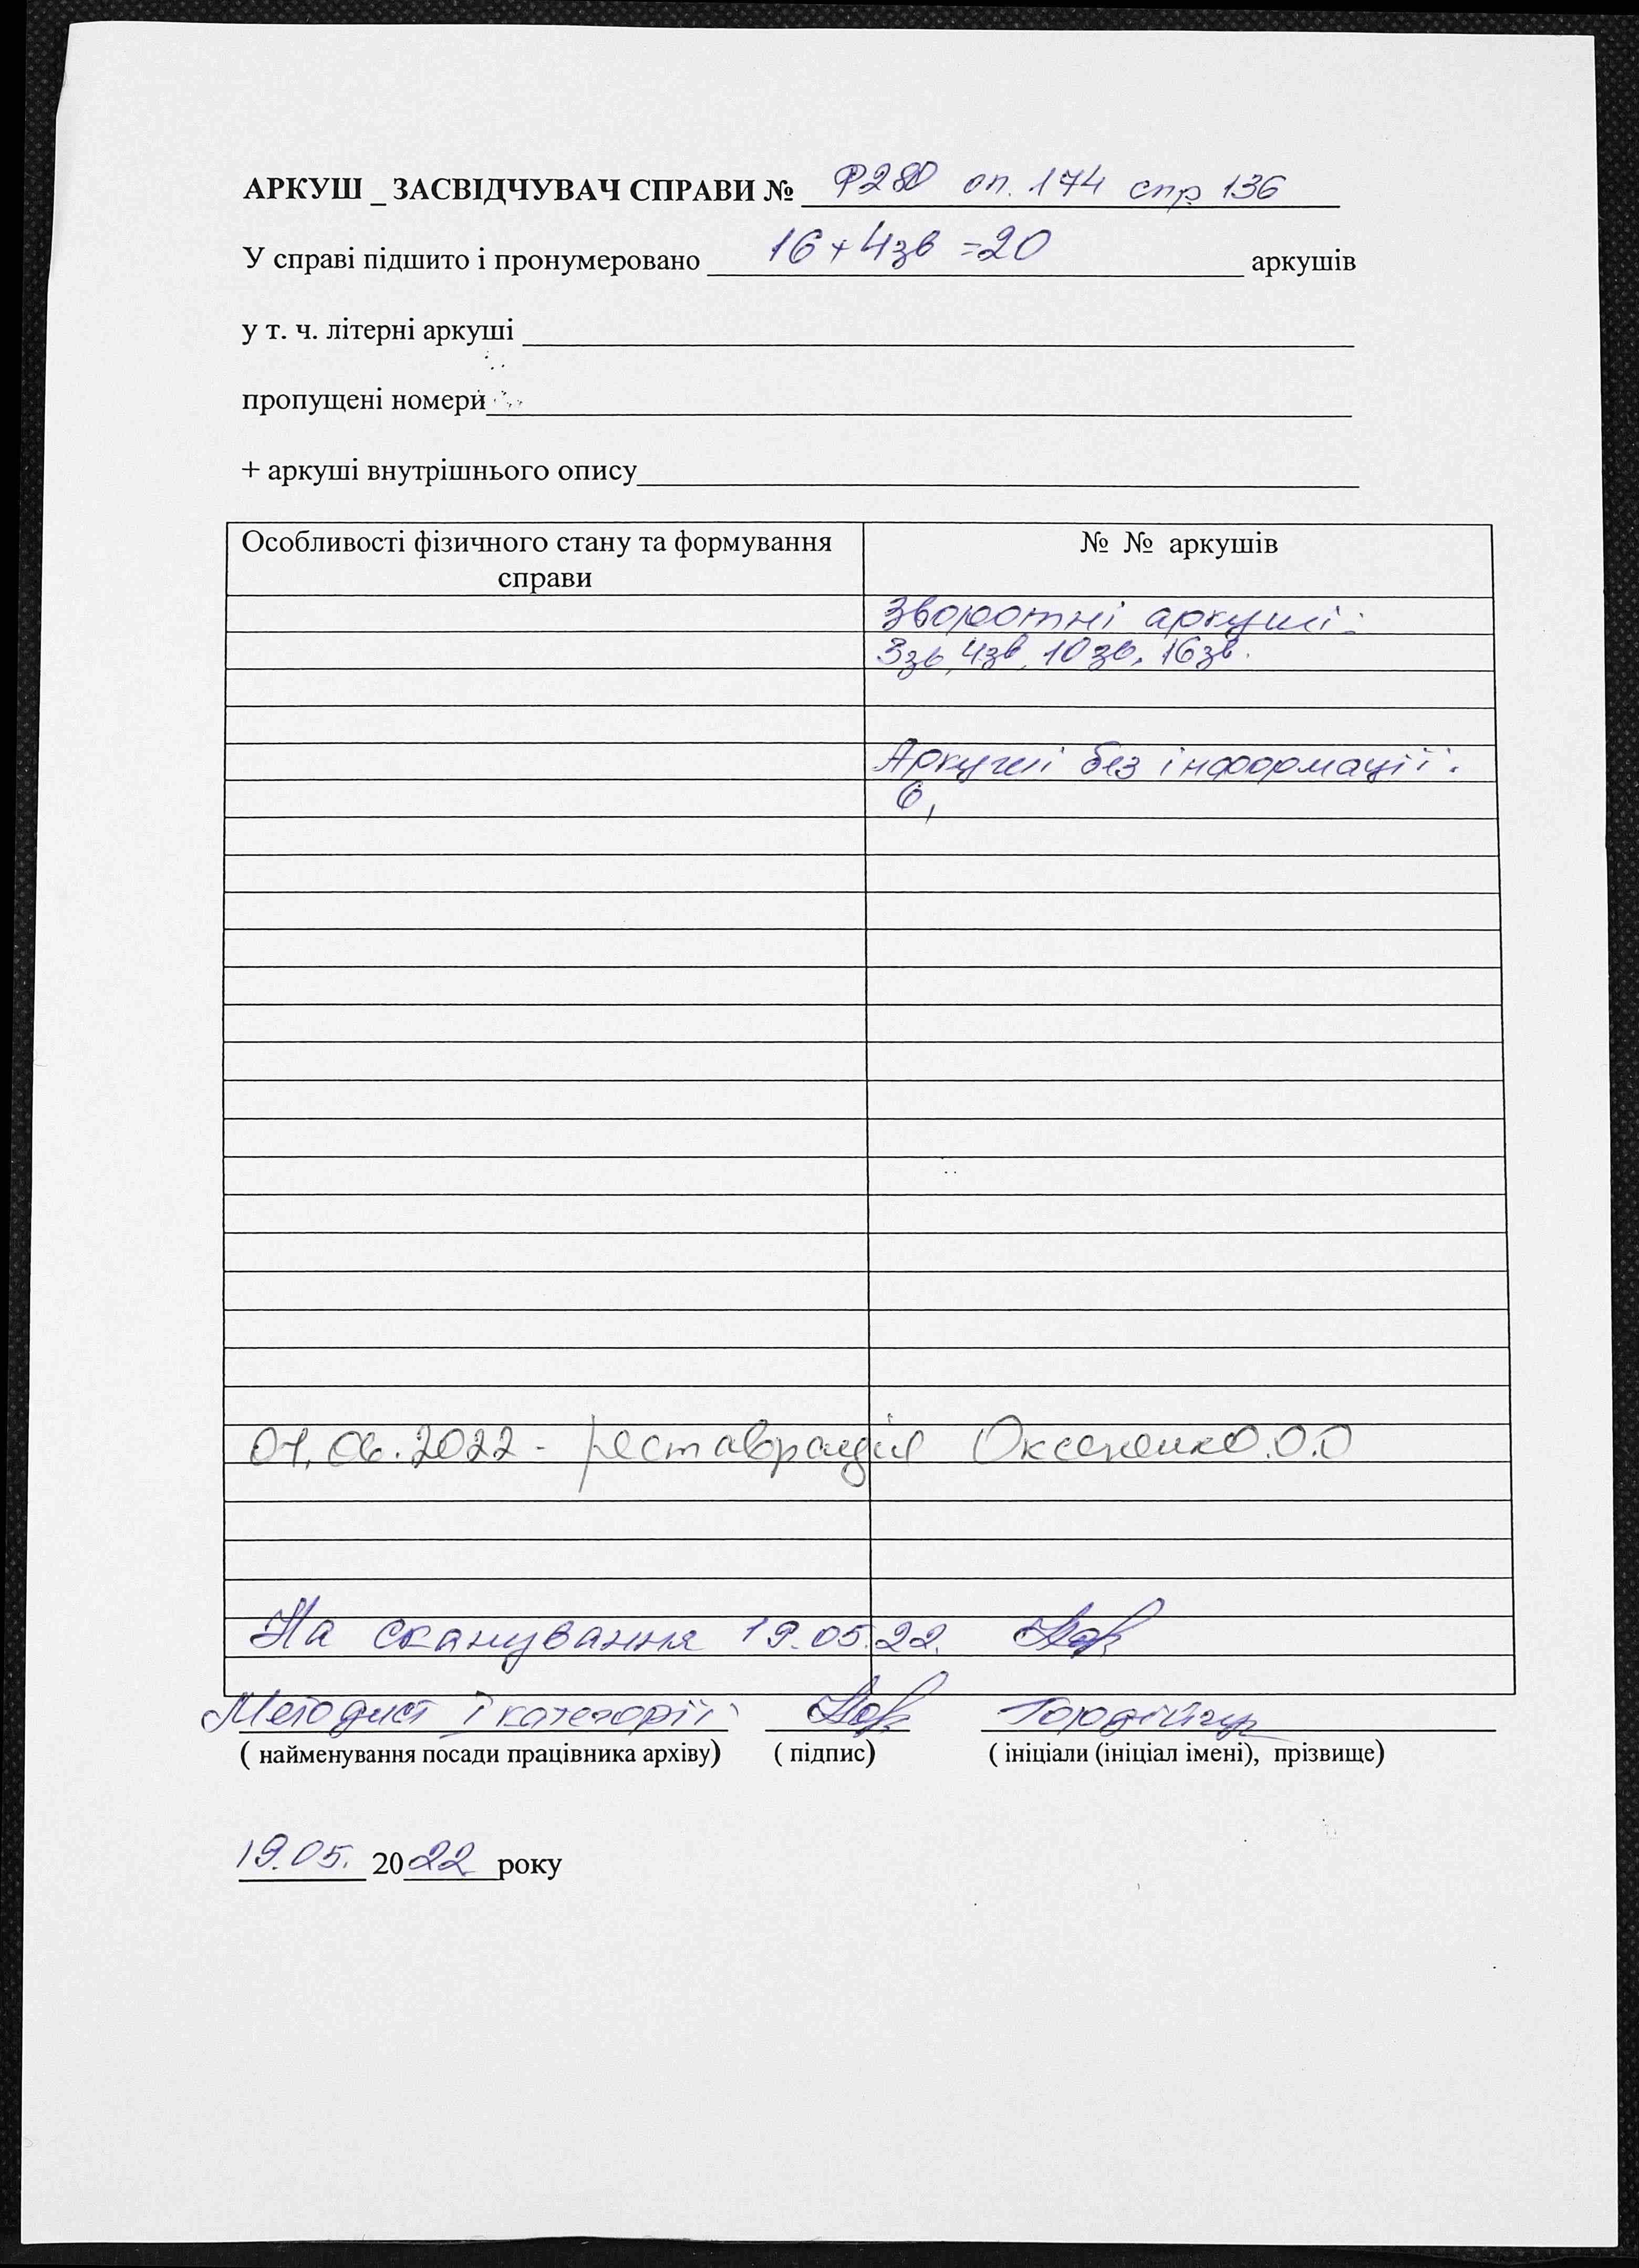 АРКУШ _ ЗАСВІДЧУВАЧ СПРАВИ № Ф280 оп. 174 спр 136
У справі підшито і пронумеровано 16+4зв =20 аркушів
у т. ч. літерні аркуші
пропущені номери
+ аркуші внутрішнього опису
Особливості фізичного стану та формування справи
№ № аркушів
Зворотні аркуші:
3зв, 4зв, 10зв, 16зв.
Аркуші без інформації:
6,
01.06.2022 - реставрація Оксененко О.О
На сканування 19.05.22.
Методист І категорії
( найменування посади працівника архіву) ( підпис) ( ініціали (ініціал імені), прізвище)
19.05. 2022 року